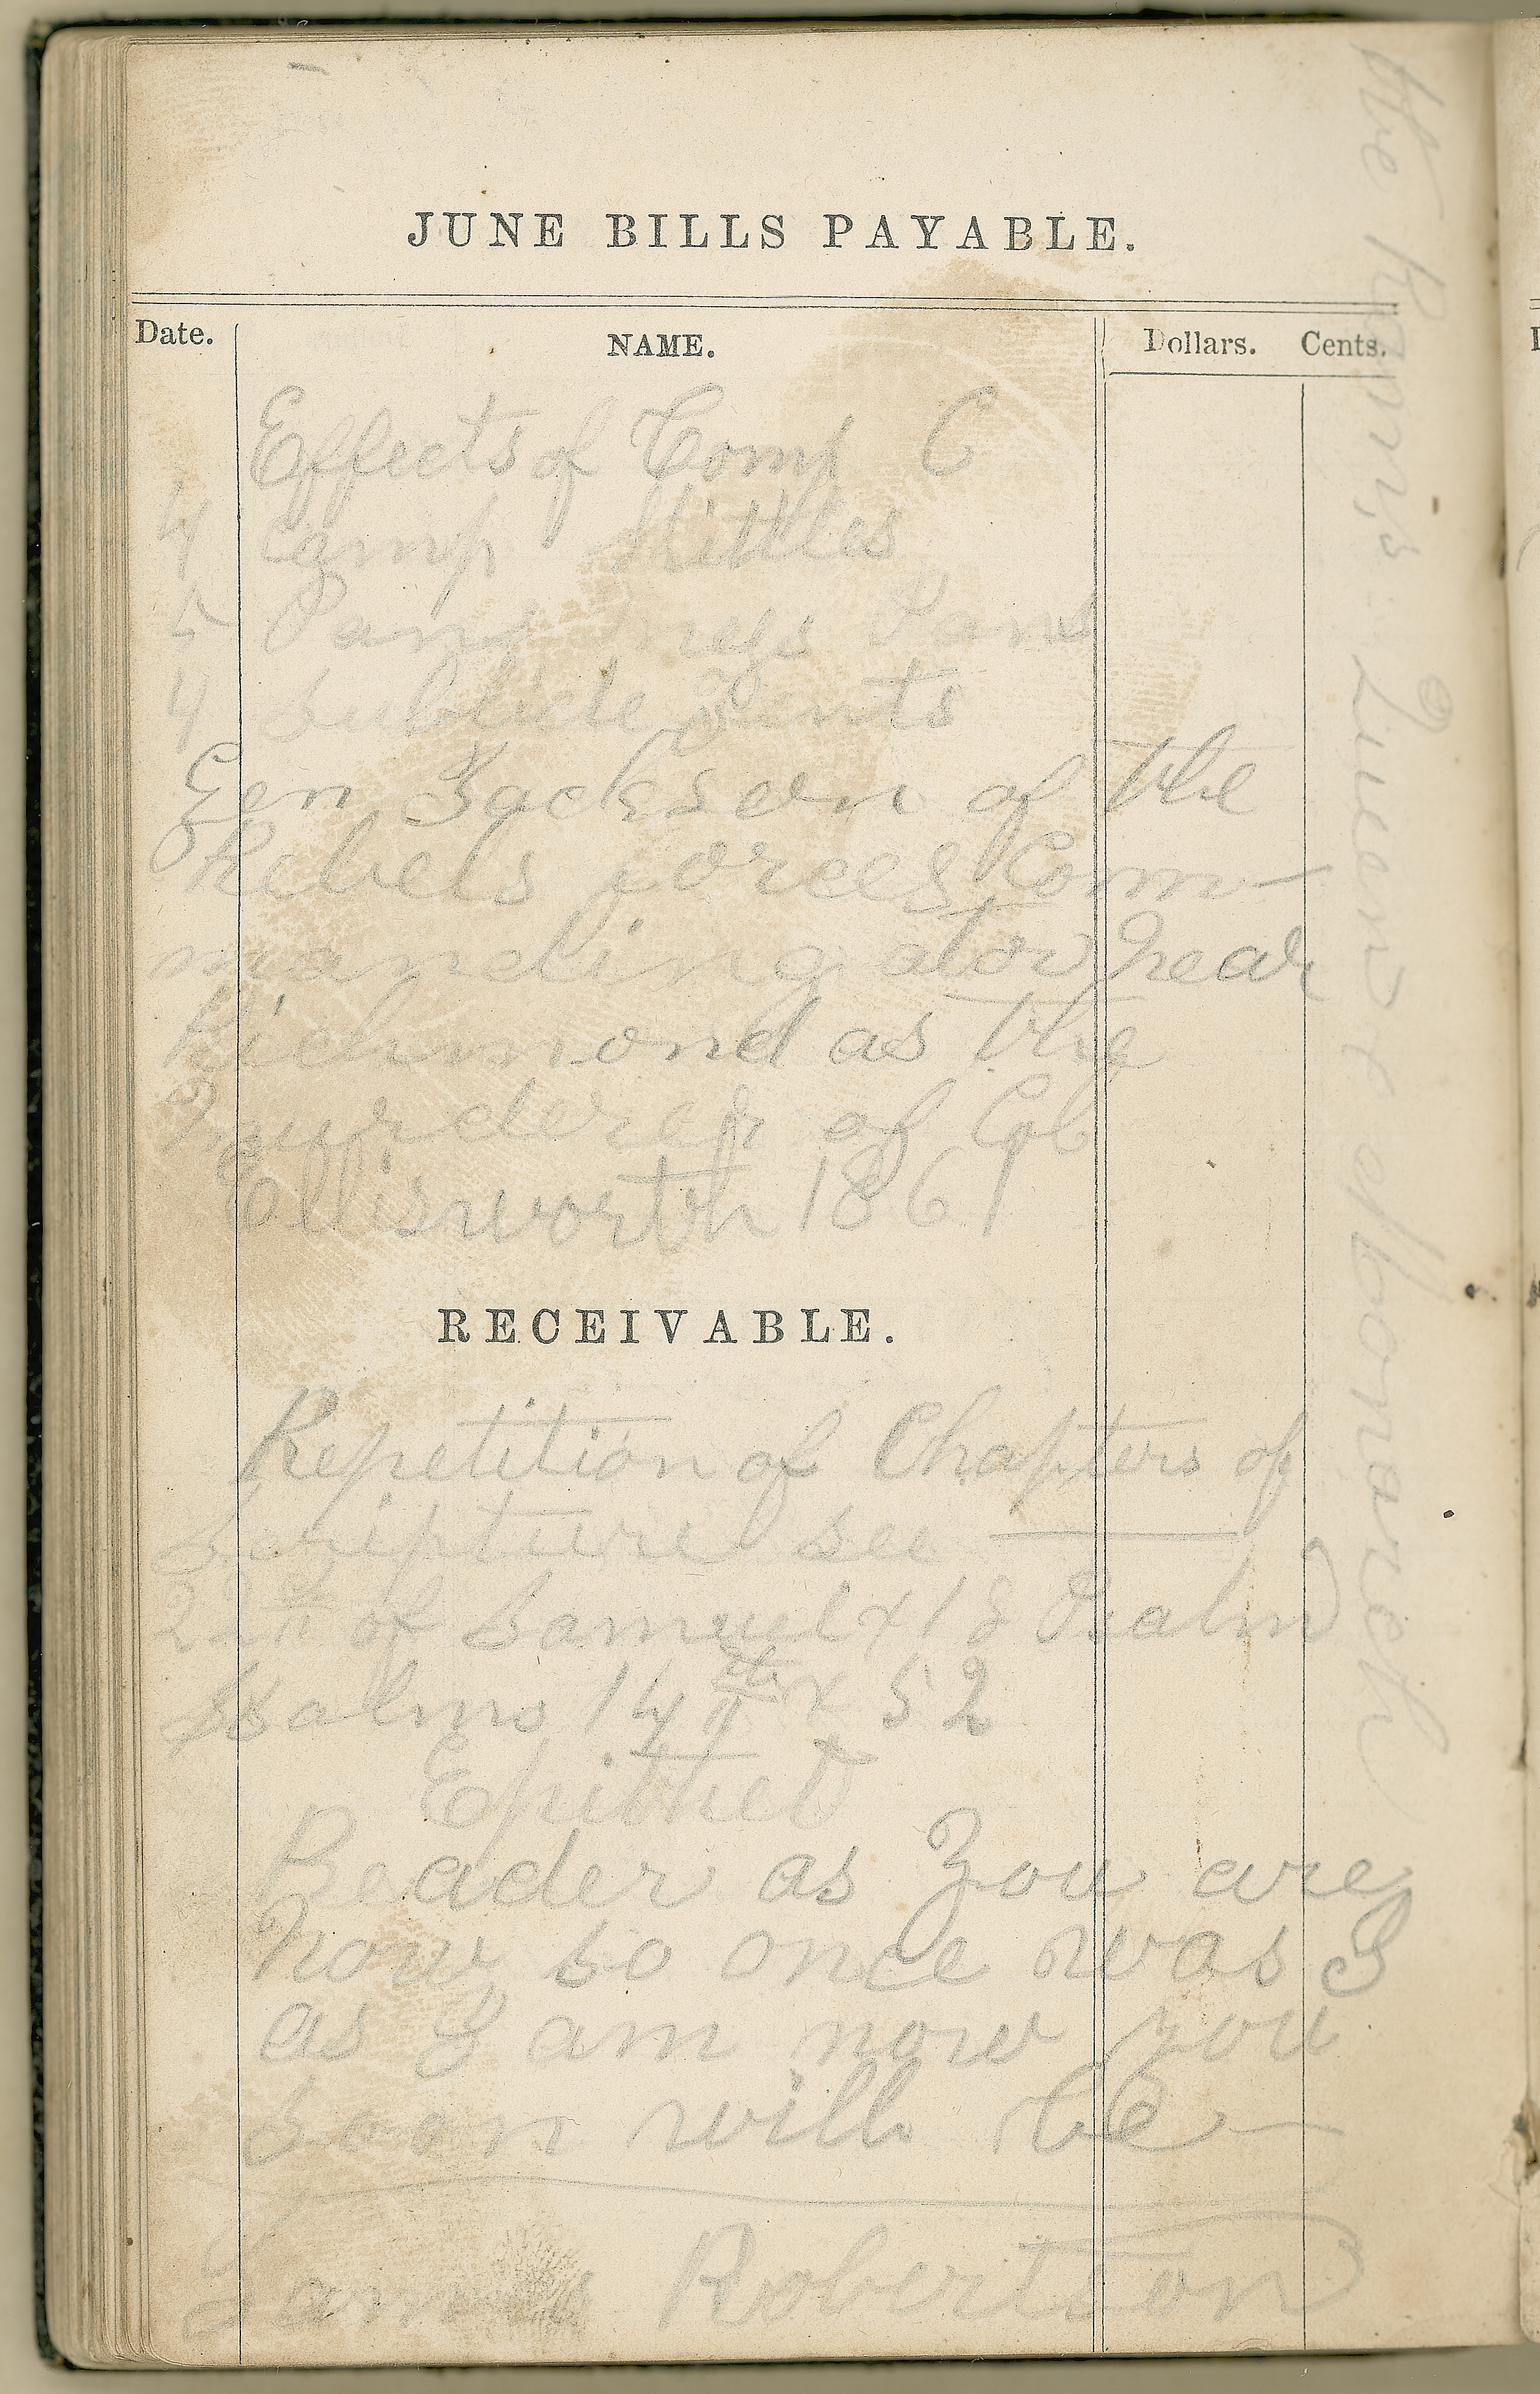 JUNE BILLS PAYABLE.
Date. NAME. Dollars. Cents.
Effects of Comp C
4 Camp Kittles
5 Pans mess Pans
4 Sublide Tents
Gen Jackson of the
Rebels forces Com-
manding at or near
Richmond as the
Murderer of Col
Ellisworth 1861
RECEIVABLE.
Repetition of Chapters of
Scripture see
22th of Samuel & 18 Psalm
Psalms 14th & 52
Epithet
Reader as you are
now so once was I
as I am now you
soon will be
James Robertson
the